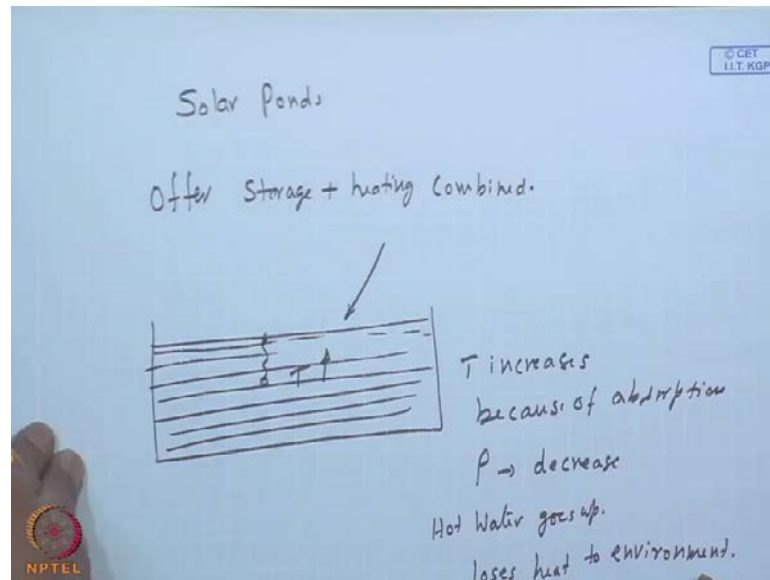 © CET
I.I.T. KGP
Solar Ponds
Offer Storage + heating Combined.
T
T increases
because of absorption
ρ → decrease
Hot Water goes up.
loses heat to environment.
NPTEL